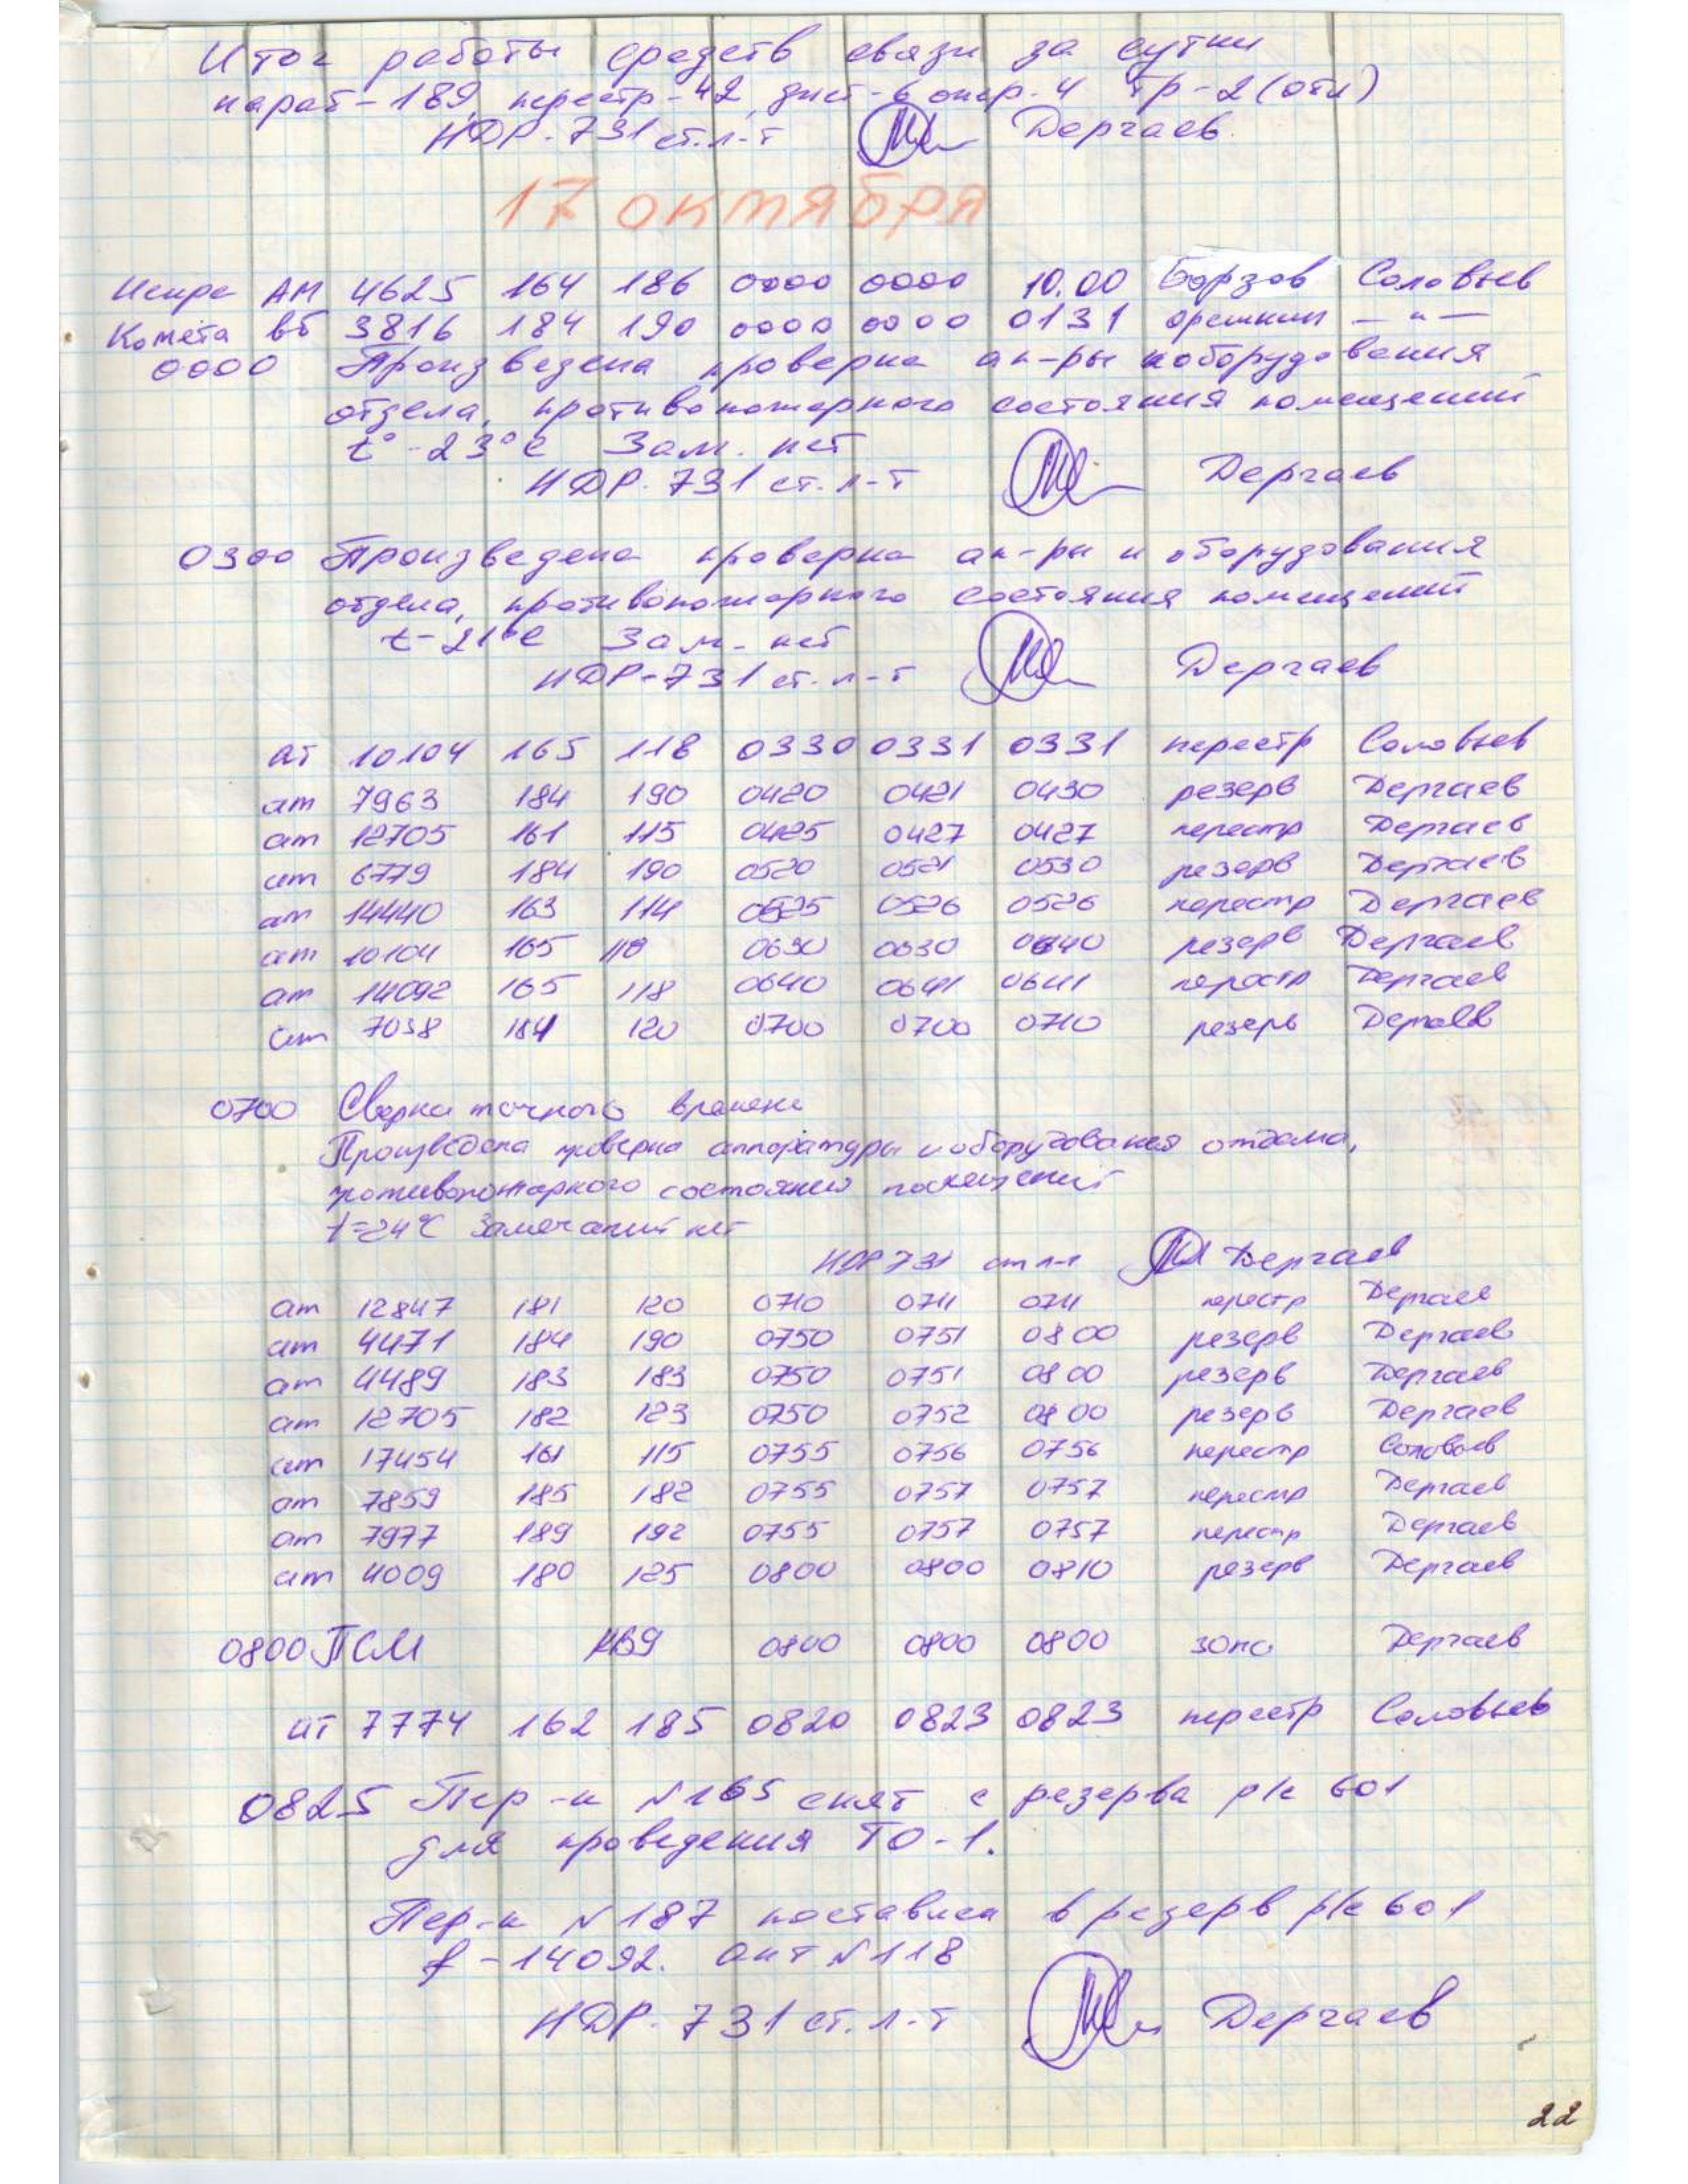 Итог работы средств связи за сутки
нараб-189, перестр-42, дист-6 опер.4 тр-2(отл)
НДР-731 ст.л-т Дергаев.
17 октября
Искра АМ 4625 164 186 0000 0000 10.00 Борзов Соловьев
Комета вб 3816 184 190 0000 0000 0131 орешкин — " —
0000 Произведена проверка ап-ры и оборудования
отдела, противопожарного состояния помещений
t° -23°С Зам. нет
НДР-731 ст.л-т Дергаев
0300 Произведена проверка ап-ры и оборудования
отдела, противопожарного состояния помещений
t-21°С Зам. нет
НДР-731 ст.л-т Дергаев
ат 10104 165 118 0330 0331 0331 перестр Соловьев
ат 7963 184 190 0420 0421 0430 резерв Дергаев
ат 12705 161 115 0425 0427 0427 перестр Дергаев
ат 6779 184 190 0520 0521 0530 резерв Дергаев
ат 14440 163 114 0525 0526 0526 перестр Дергаев
ат 10104 165 118 0630 0630 0640 резерв Дергаев
ат 14092 165 118 0640 0641 0641 перестр Дергаев
ат 7038 184 120 0700 0700 0710 резерв Дергаев
0700 Сверка точного времени
Произведена проверка аппаратуры и оборудования отдела,
противопожарного состояния помещений
t=24°С Замечаний нет
НДР 731 ст л-т Дергаев
ат 12847 181 120 0710 0711 0711 перестр Дергаев
ат 4471 184 190 0750 0751 0800 резерв Дергаев
ат 4489 183 183 0750 0751 0800 резерв Дергаев
ат 12705 182 123 0750 0752 0800 резерв Дергаев
ат 17454 161 115 0755 0756 0756 перестр Соловьев
ат 7859 185 182 0755 0757 0757 перестр Дергаев
ат 7977 189 192 0755 0757 0757 перестр Дергаев
ат 4009 180 125 0800 0800 0810 резерв Дергаев
0800 ПСМ 0800 0800 0800 Дергаев
ат 7774 162 185 0820 0823 0823 перестр Соловьев
0825 Пер-к №165 снят с резерва р/с 601
для проведения ТО-1.
Пер-к №187 поставлен в резерв р/с 601
f-14092. ант №118
НДР-731 ст.л-т Дергаев
22